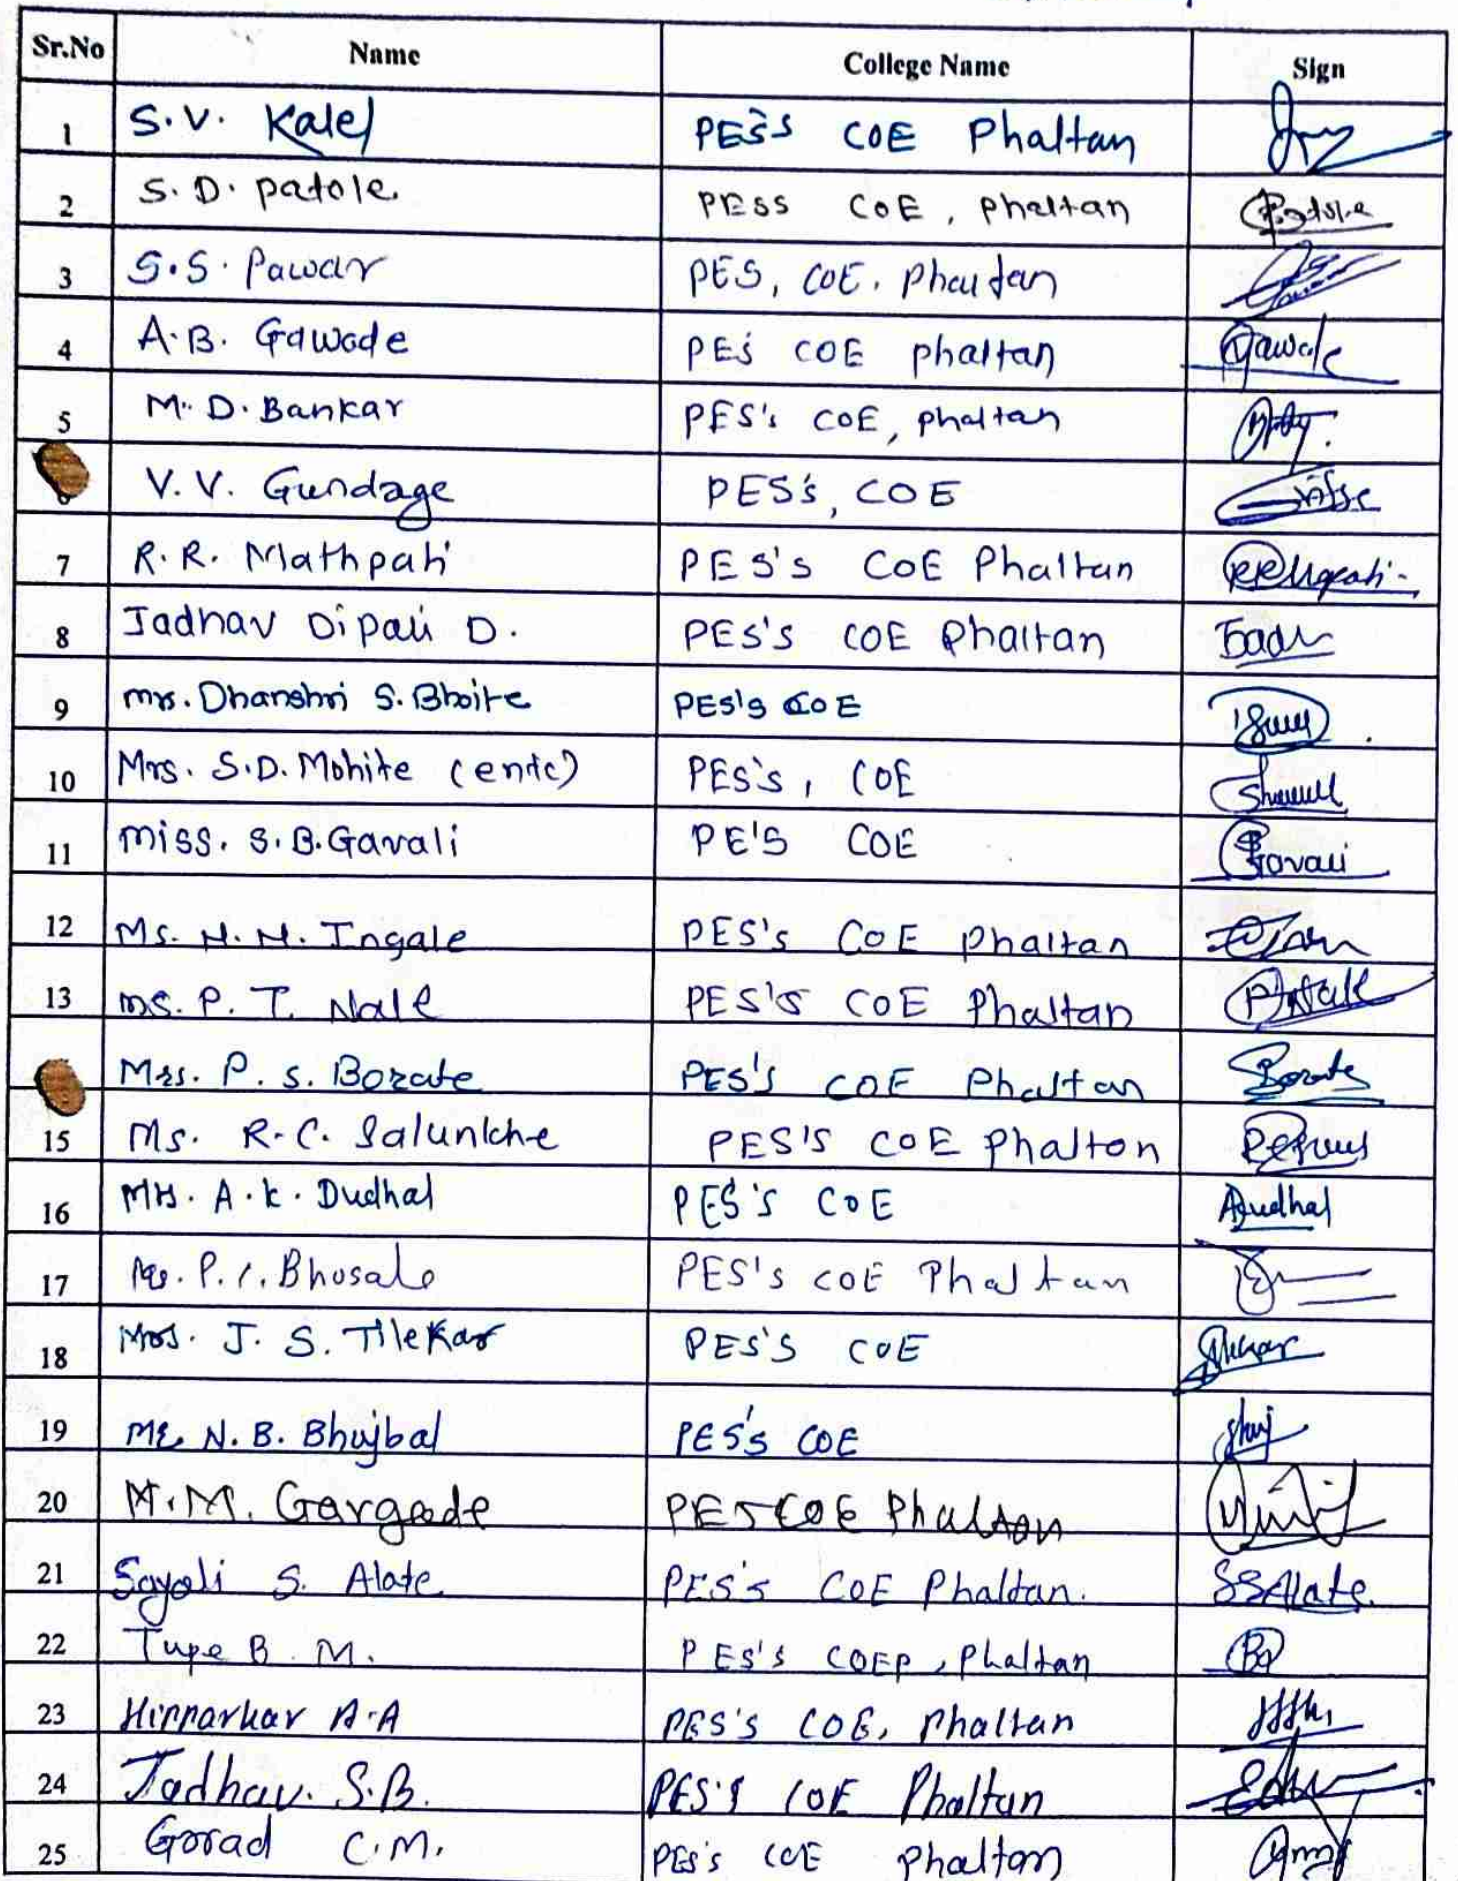 Sr.No Name College Name Sign
1 S.V. Kalel PES's COE Phaltan
2 S.D. Patole. PESS COE, Phaltan Patole
3 S.S. Pawar PES, COE. Phaltan
4 A.B. Gawade PES COE Phaltan Gawade
5 M.D. Bankar PES's COE, phaltan
V.V. Gundage PES's, COE
7 R.R. Mathpati PES's COE Phaltan
8 Jadhav Dipali D. PES's COE Phaltan
9 mrs. Dhanshri S. Bhoite PES's COE
10 Mrs. S.D. Mohite (entc) PES's, COE
11 miss. S.B. Gavali PE'S COE Gavali
12 Ms. N. N. Ingale PES's COE Phaltan
13 ms. P. T. Nale PES's COE Phaltan PTNale
Mrs. P. S. Borate PES's COE Phaltan Borate
15 Ms. R.C. Salunkhe PES'S COE Phalton
16 Mrs. A.K. Dudhal PES's COE Adudhal
17 P. Bhosale PES's COE Phaltan
18 Mrs. J. S. Tilekar PES'S COE
19 Mr. N.B. Bhujbal PES's COE
20 M.M. Gargade PES COE Phaltan
21 Sayali S. Alate PES's COE Phaltan. SSAlate.
22 Tupe B. M. PES's COEP, Phaltan
23 Hipparkar A.A PES's COE, Phaltan
24 Jadhav. S.B. PES's COE Phaltan
25 Gorad C.M. PES's COE Phaltan